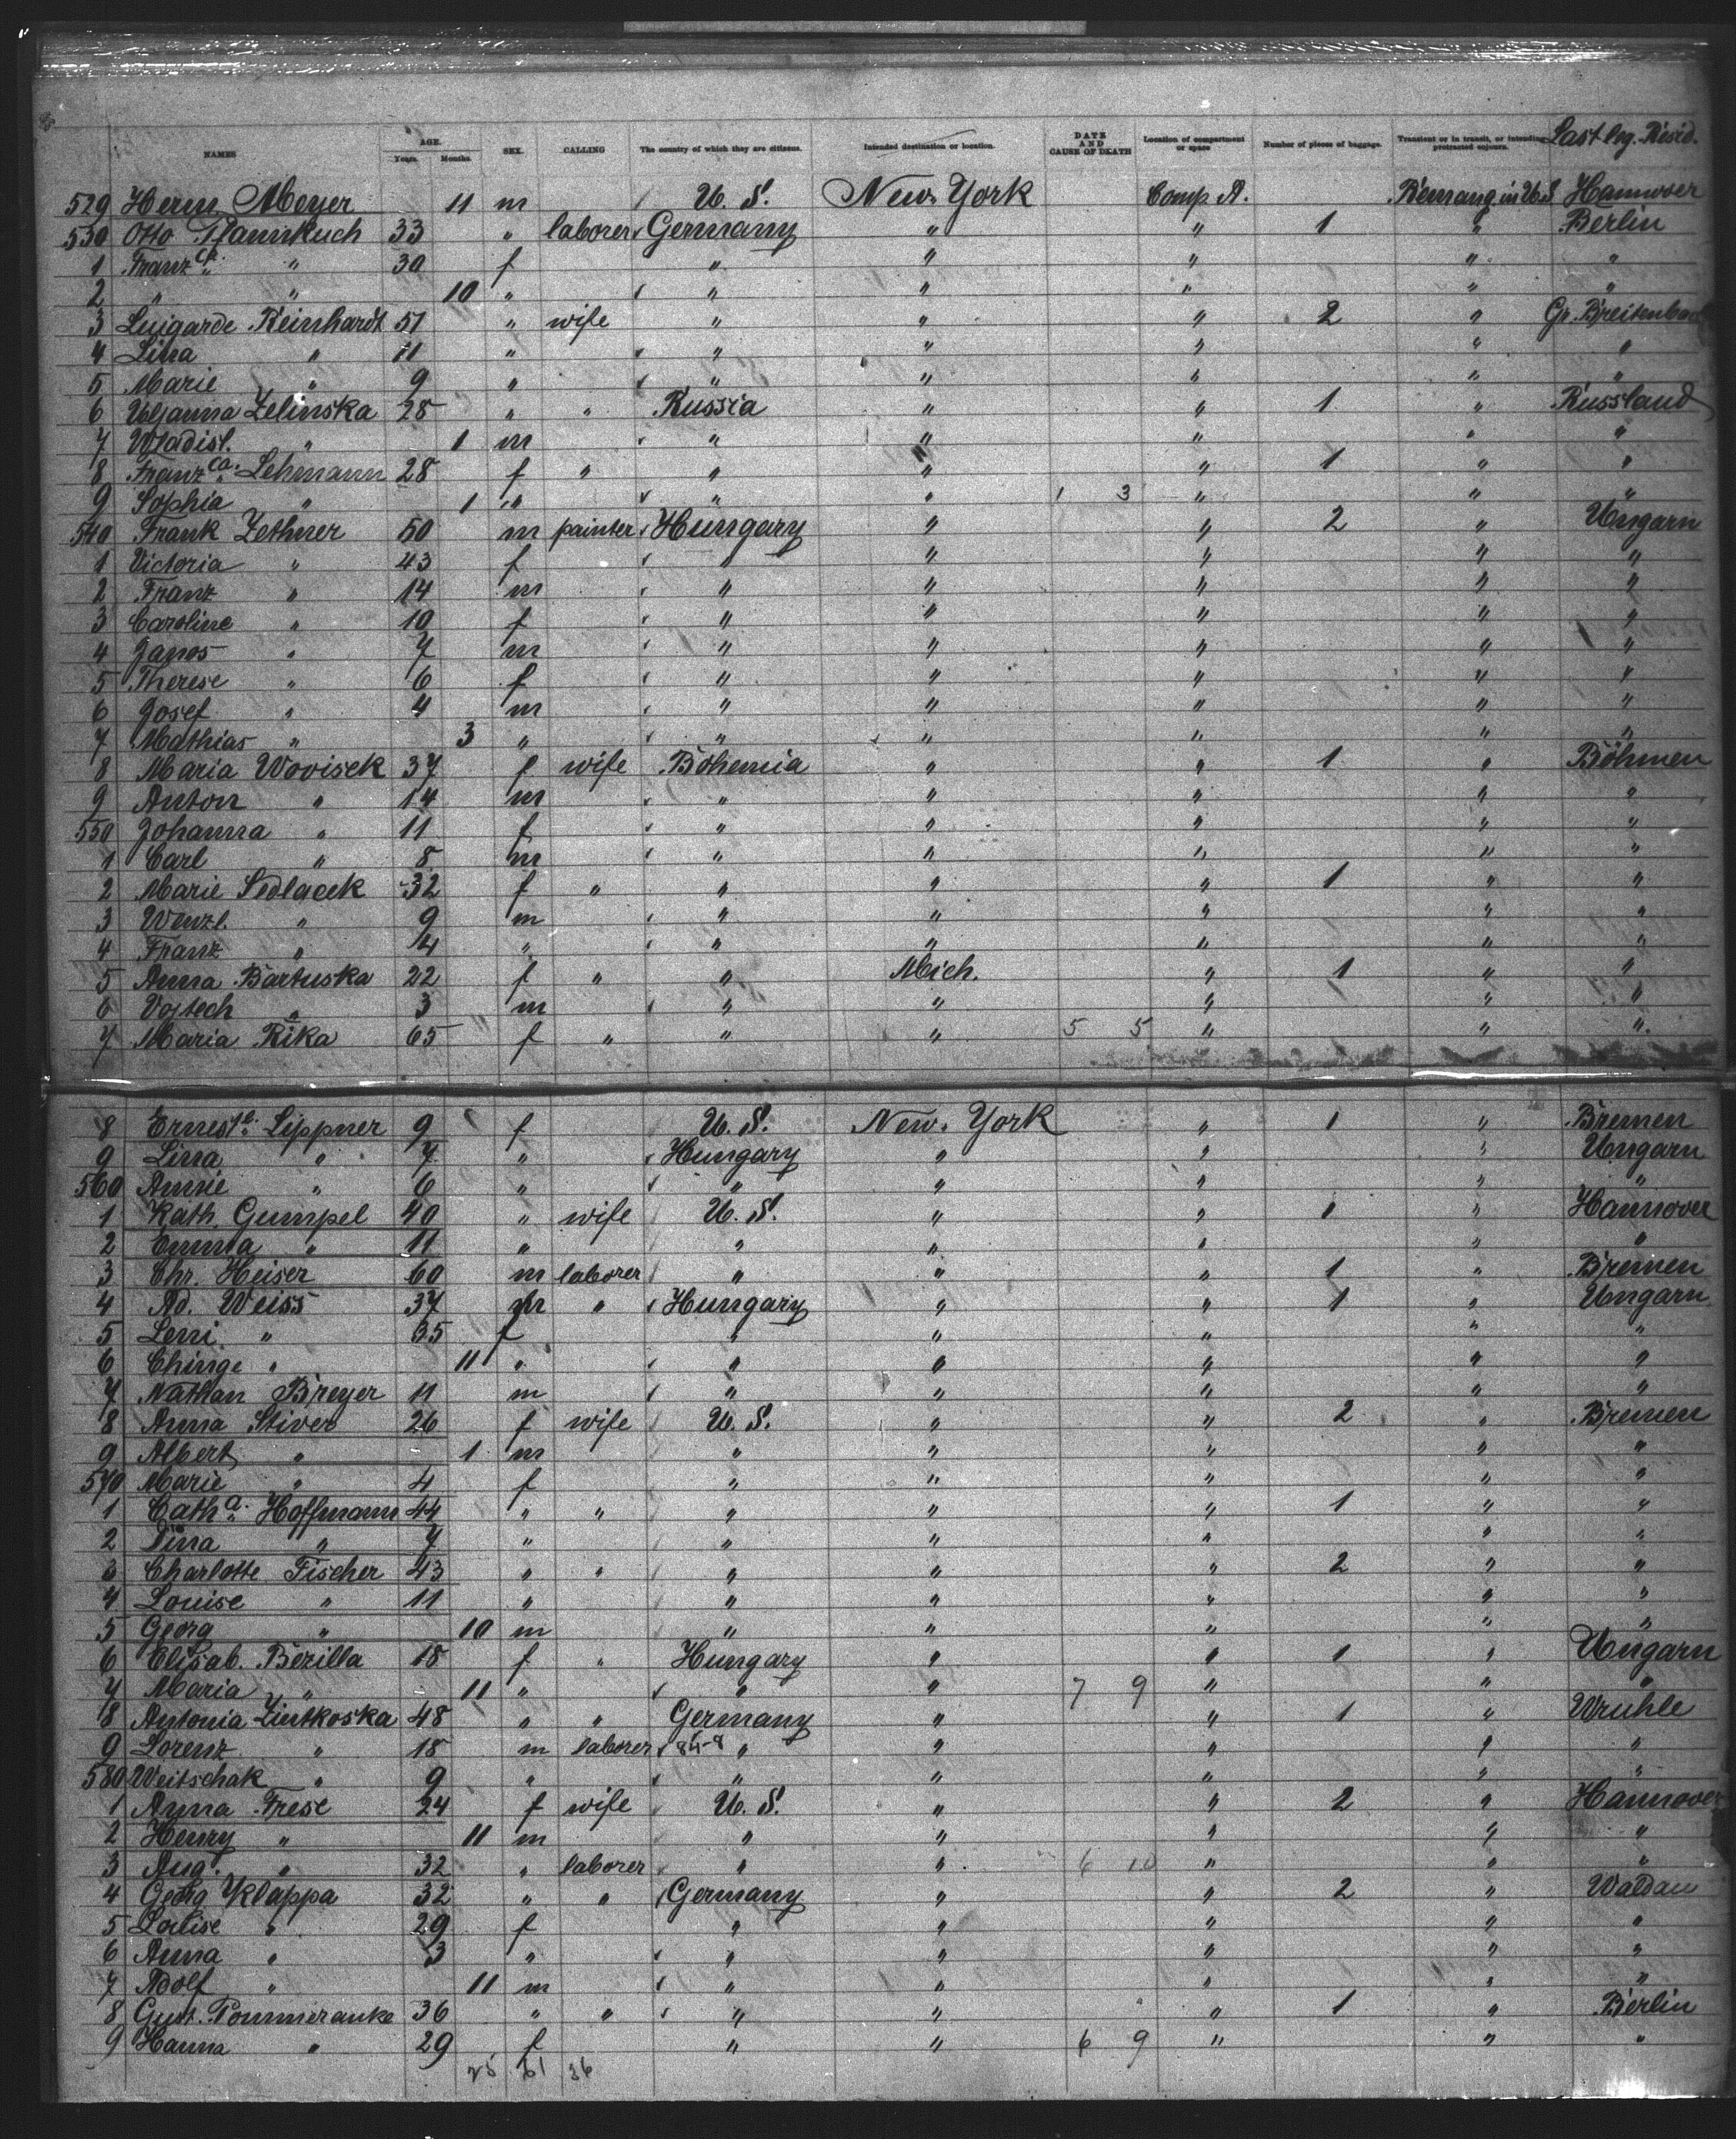 NAMES AGE. Years. Months. SEX. CALLING The country of which they are citizens. Intended destination or location. DATE AND CAUSE OF DEATH Location of compartment or space Number of pieces of baggage. Transient or in transit, or intending protracted sojourn. Last leg. Resid.
529 Herm. Meyer 11 m U. S. New York Comp A. Hannover
530 Otto Pfannkuch 33 " laborer Germany " " 1 " Berlin
1 Franz ca. " 30 f " " " " "
2 " " 10 " " " " " "
3 Luigarde Reinhardt 51 " wife " " " 2 " Gr. Breitenbach
4 Lina " 11 " " " " " "
5 Marie " 9 " " " " " "
6 Uljanna Zelinska 28 " " Russia " " 1 " Russland
7 Wladisl. " 1 m " " " " "
8 Franz ca. Lehmann 28 f " " " " 1 " "
9 Sophia " 1 " " " 1 3 " " "
540 Frank Zethner 50 m painter Hungary " " 2 " Ungarn
1 Victoria " 43 f " " " " "
2 Franz " 14 m " " " " "
3 Caroline " 10 f " " " " "
4 Janos " 7 m " " " " "
5 Therese " 6 f " " " " "
6 Josef " 4 m " " " " "
7 Mathias " 3 " " " " " "
8 Maria Wovisek 37 f wife Bohemia " " 1 " Böhmen
9 Anton " 14 m " " " " "
550 Johanna " 11 f " " " " "
1 Carl " 8 m " " " " "
2 Marie Sedlacek 32 f " " " " 1 " "
3 Wenzl. " 9 m " " " " "
4 Franz " 4 " " " " " "
5 Anna Bartuska 22 f " " Mich. " 1 " "
6 Vojtech " 3 m " " " " "
7 Maria Rika 65 f " " " 5 5 " " "
8 Ernest Lippner 9 f U. S. New York " 1 " Bremen
9 Lina " 7 " Hungary " " " Ungarn
560 Annie " 6 " " " " " "
1 Kath. Gumpel 40 " wife U. S. " " 1 " Hannover
2 Emma " 11 " " " " " "
3 Chr. Heiser 60 m laborer " " " 1 " Bremen
4 Ad. Weiss 37 m " Hungary " " 1 " Ungarn
5 Leni " 35 f " " " " "
6 Chinge " 11 " " " " " "
7 Nathan Breyer 11 m " " " " "
8 Anna Stiver 26 f wife U. S. " " 2 " Bremen
9 Albert " 1 m " " " " "
570 Marie " 4 f " " " " "
1 Cath a. Hoffmann 44 " " " " " 1 " "
2 Dina " 7 " " " " " "
3 Charlotte Fischer 43 " " " " " 2 " "
4 Louise " 11 " " " " " "
5 Georg " 10 m " " " " "
6 Elisab. Bezilla 18 f " Hungary " " 1 " Ungarn
7 Maria " 11 " " " 7 9 " " "
8 Antonia Zintkoska 48 " " Germany " " 1 " Wruhle
9 Lorenz " 18 m laborer 84-8 " " " " "
580 Weitschak " 9 " " " " " "
1 Anna Frese 24 f wife U. S. " " 2 " Hannover
2 Henry " 11 m " " " " "
3 Aug. " 32 " laborer " " 6 10 " " "
4 Georg Klappa 32 " " Germany " " 2 " Waldau
5 Louise " 29 f " " " " "
6 Anna " 3 " " " " " "
7 Adolf " 11 m " " " " "
8 Gust. Pommeranke 36 " " " " " 1 " Berlin
9 Hanna " 29 f " " 6 9 " " "
25 61 36